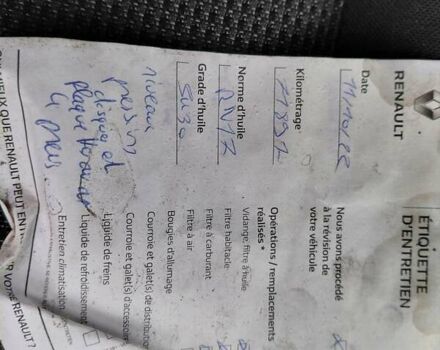 RENAULT
ÉTIQUETTE
D'ENTRETIEN
Date
11/10/22
Kilométrage
Norme d'huile
RN17
Grade d'huile
5W30
niveaux
pression
disque et
plaque
4 pneus
Nous avons procédé
à la révision de
votre véhicule
Opérations / remplacements
réalisés *
Vidange, filtre à huile
Filtre habitacle
Filtre à carburant
Filtre à air
Bougies d'allumage
Courroie et galet(s) de distribution
Courroie et galet(s) d'accessoires
Liquide de freins
Liquide de refroidissement
Entretien climatisation
MIEUX QUE RENAULT PEUT
VOTRE RENAULT ?